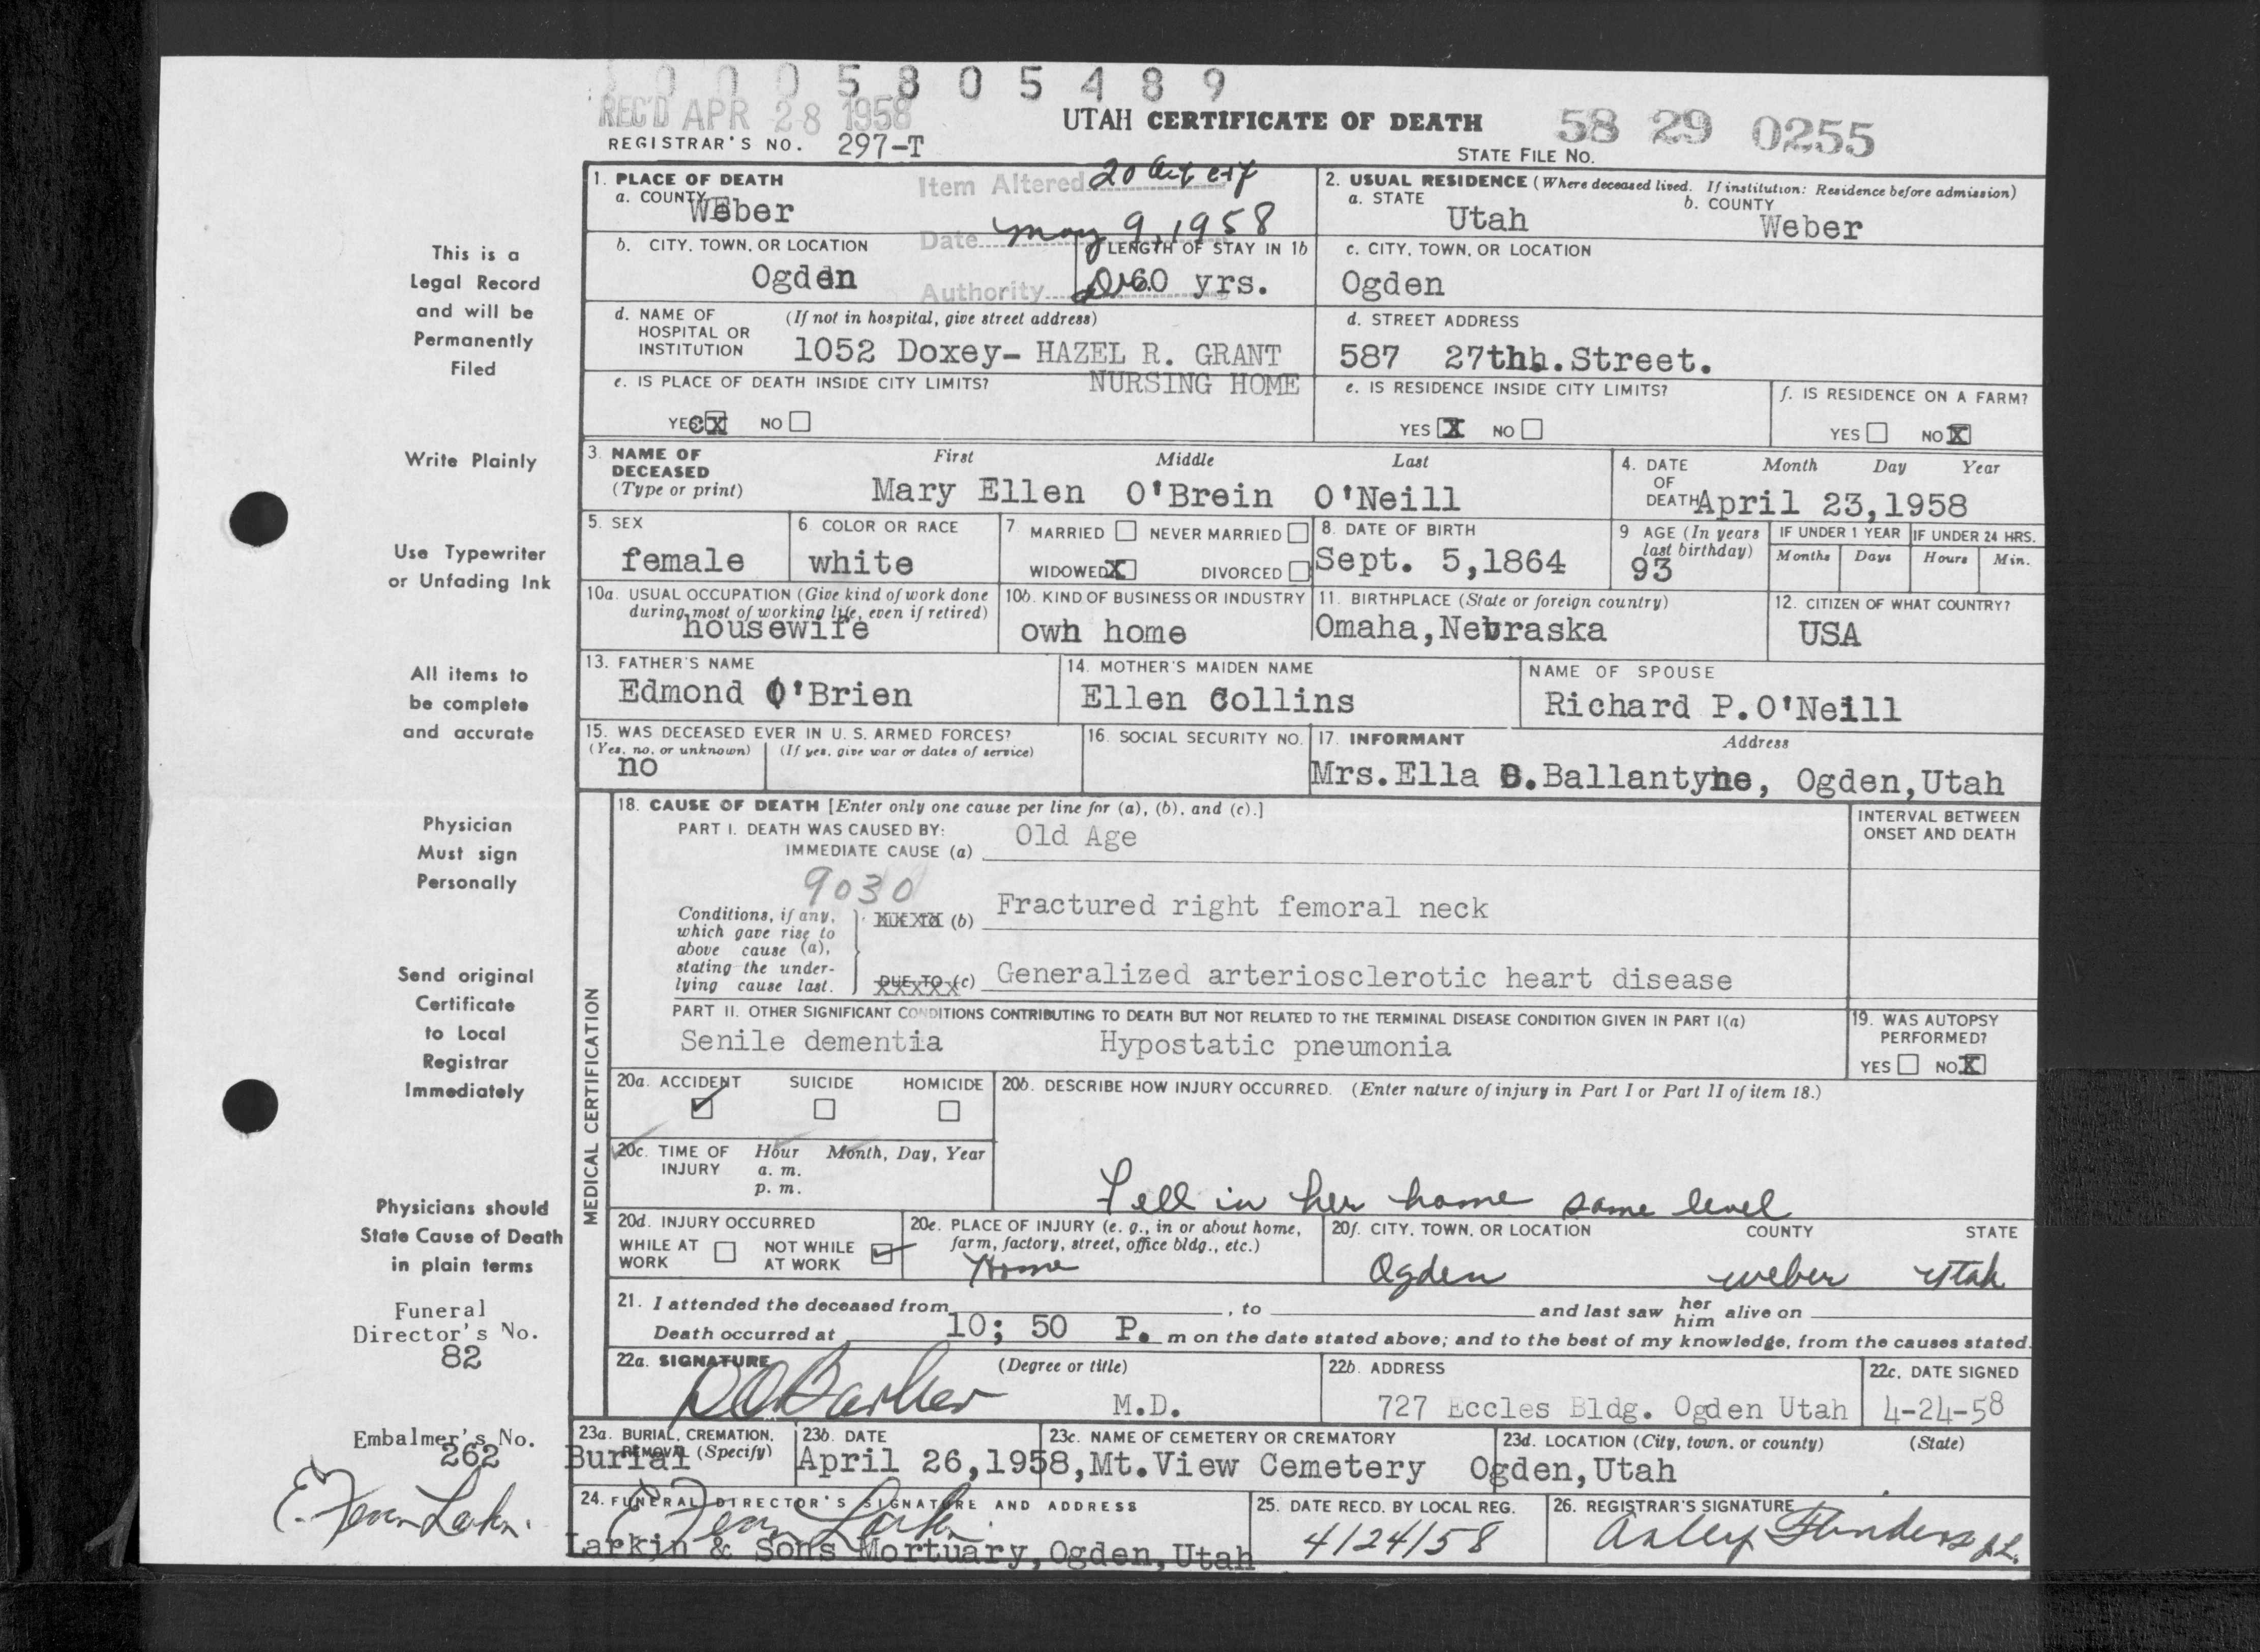 0 0 0 5 8 0 5 4 8 9
REC'D APR 28 1958
UTAH CERTIFICATE OF DEATH
58 29 0255
REGISTRAR'S NO. 297-T
STATE FILE NO.
1. PLACE OF DEATH
Item Altered
2. USUAL RESIDENCE (Where deceased lived. If institution: Residence before admission)
a. COUNTY Weber
Date may 9, 1958
a. STATE Utah
b. COUNTY Weber
b. CITY, TOWN, OR LOCATION Ogden
Authority
LENGTH OF STAY IN 1b 60 yrs.
c. CITY, TOWN, OR LOCATION Ogden
d. NAME OF HOSPITAL OR INSTITUTION (If not in hospital, give street address)
1052 Doxey- HAZEL R. GRANT
NURSING HOME
d. STREET ADDRESS
587 27thh. Street.
e. IS PLACE OF DEATH INSIDE CITY LIMITS?
YES X NO
e. IS RESIDENCE INSIDE CITY LIMITS?
YES X NO
f. IS RESIDENCE ON A FARM?
YES NO X
3. NAME OF DECEASED (Type or print)
First Middle Last
Mary Ellen O'Brein O'Neill
4. DATE OF DEATH Month Day Year
April 23,1958
5. SEX
female
6. COLOR OR RACE
white
7. MARRIED NEVER MARRIED
WIDOWED X DIVORCED
8. DATE OF BIRTH
Sept. 5,1864
9 AGE (In years last birthday)
93
IF UNDER 1 YEAR
Months Days
IF UNDER 24 HRS.
Hours Min.
10a. USUAL OCCUPATION (Give kind of work done during most of working life, even if retired)
housewife
10b. KIND OF BUSINESS OR INDUSTRY
own home
11. BIRTHPLACE (State or foreign country)
Omaha, Nebraska
12. CITIZEN OF WHAT COUNTRY?
USA
13. FATHER'S NAME
Edmond O'Brien
14. MOTHER'S MAIDEN NAME
Ellen Collins
NAME OF SPOUSE
Richard P. O'Neill
15. WAS DECEASED EVER IN U. S. ARMED FORCES?
(Yes, no, or unknown) (If yes, give war or dates of service)
no
16. SOCIAL SECURITY NO.
17. INFORMANT Address
Mrs. Ella Ballantyne, Ogden, Utah
MEDICAL CERTIFICATION
18. CAUSE OF DEATH [Enter only one cause per line for (a), (b), and (c).]
INTERVAL BETWEEN ONSET AND DEATH
PART I. DEATH WAS CAUSED BY:
IMMEDIATE CAUSE (a) Old Age
9030
Conditions, if any, which gave rise to above cause (a), stating the underlying cause last.
DUE TO (b) Fractured right femoral neck
DUE TO (c) Generalized arteriosclerotic heart disease
PART II. OTHER SIGNIFICANT CONDITIONS CONTRIBUTING TO DEATH BUT NOT RELATED TO THE TERMINAL DISEASE CONDITION GIVEN IN PART I(a)
Senile dementia Hypostatic pneumonia
19. WAS AUTOPSY PERFORMED?
YES NO X
20a. ACCIDENT SUICIDE HOMICIDE
20b. DESCRIBE HOW INJURY OCCURRED. (Enter nature of injury in Part I or Part II of item 18.)
Fell in her home same level
20c. TIME OF INJURY Hour Month, Day, Year
a. m.
p. m.
20d. INJURY OCCURRED
WHILE AT WORK NOT WHILE AT WORK
20e. PLACE OF INJURY (e. g., in or about home, farm, factory, street, office bldg., etc.)
Home
20f. CITY, TOWN, OR LOCATION COUNTY STATE
Ogden Weber Utah
21. I attended the deceased from , to and last saw her him alive on
Death occurred at 10; 50 P. m on the date stated above; and to the best of my knowledge, from the causes stated.
22a. SIGNATURE (Degree or title)
M.D.
22b. ADDRESS
727 Eccles Bldg. Ogden Utah
22c. DATE SIGNED
4-24-58
23a. BURIAL, CREMATION, REMOVAL (Specify)
Burial
23b. DATE
April 26,1958,
23c. NAME OF CEMETERY OR CREMATORY
Mt. View Cemetery
23d. LOCATION (City, town, or county) (State)
Ogden, Utah
24. FUNERAL DIRECTOR'S SIGNATURE AND ADDRESS
Larkin & Sons Mortuary, Ogden, Utah
25. DATE RECD. BY LOCAL REG.
4/24/58
26. REGISTRAR'S SIGNATURE
This is a
Legal Record
and will be
Permanently
Filed
Write Plainly
Use Typewriter
or Unfading Ink
All items to
be complete
and accurate
Physician
Must sign
Personally
Send original
Certificate
to Local
Registrar
Immediately
Physicians should
State Cause of Death
in plain terms
Funeral
Director's No.
82
Embalmer's No.
262